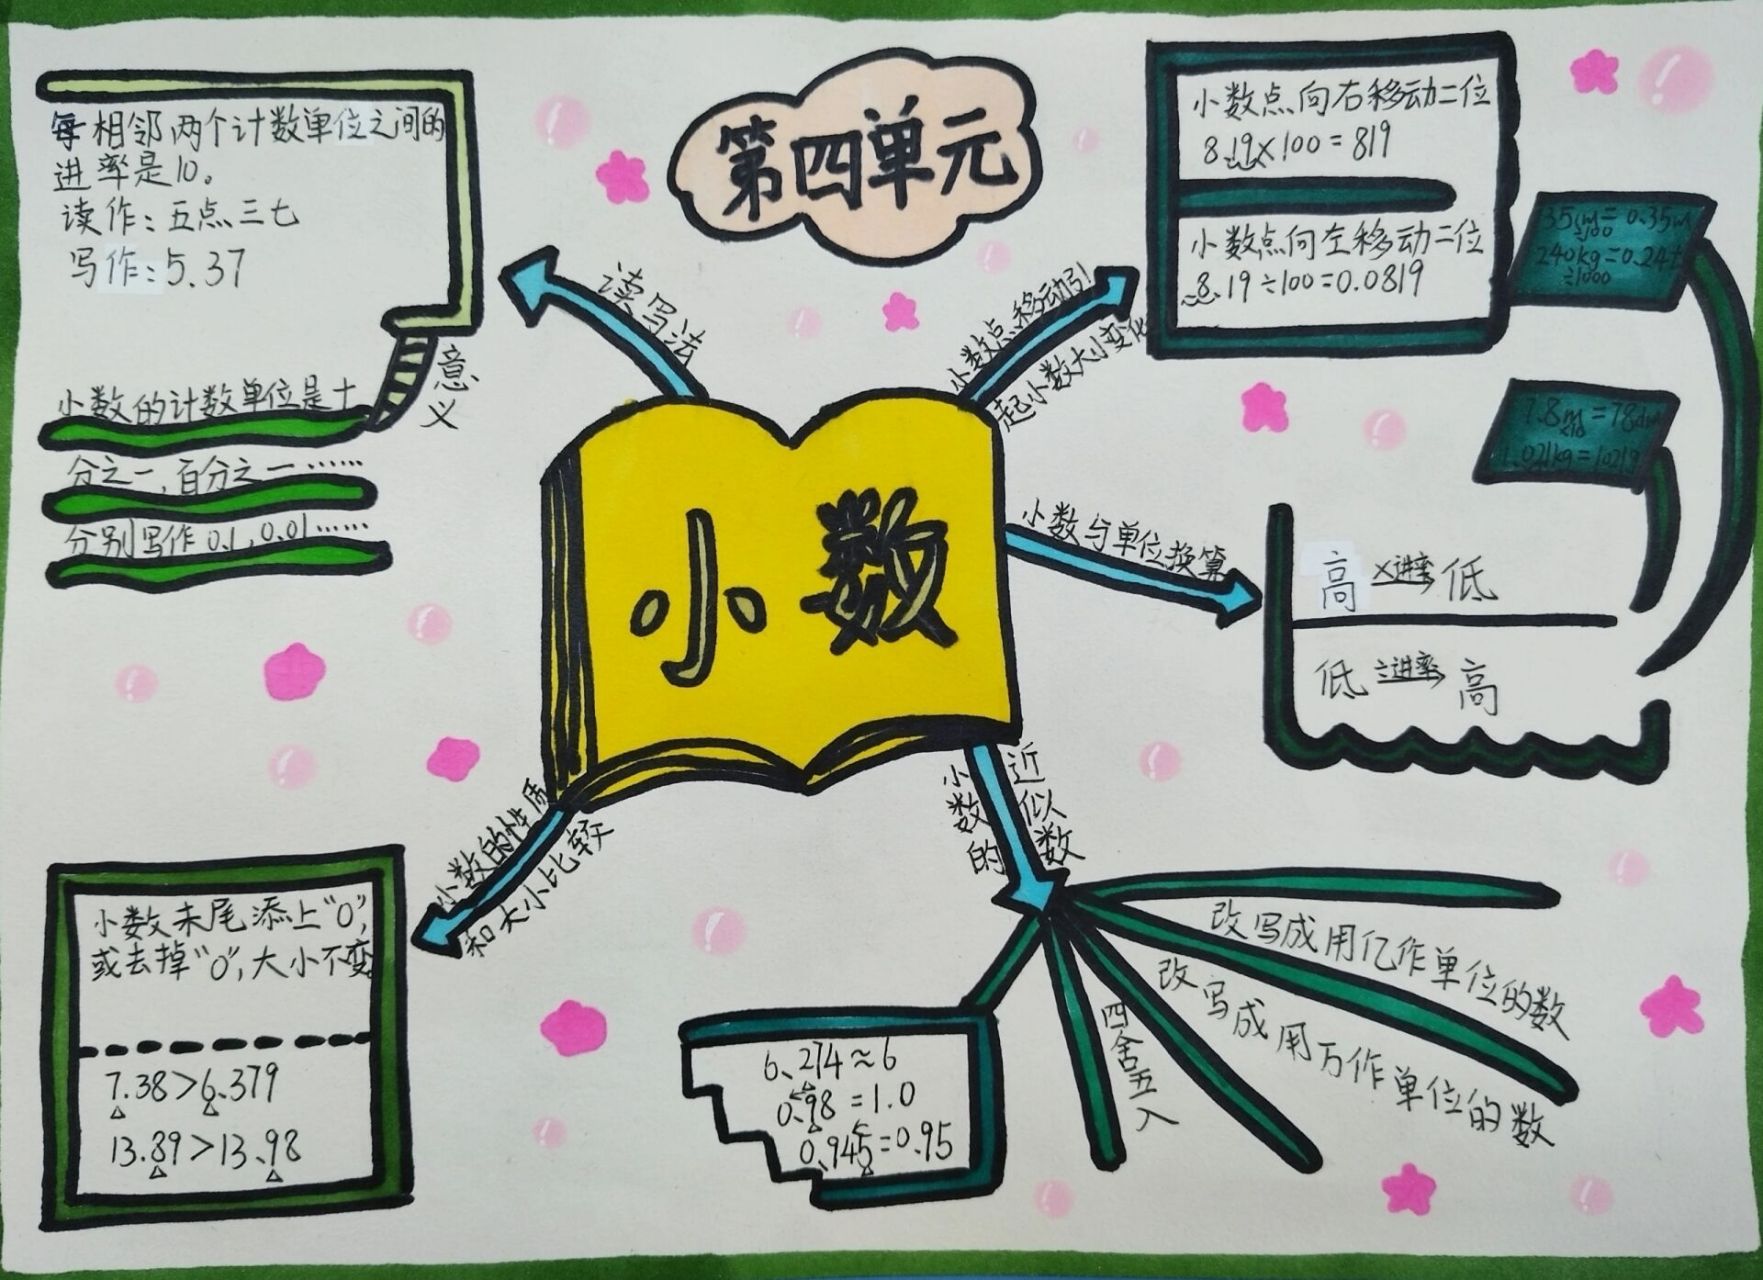 第四单元
每相邻两个计数单位之间的
进率是10。
读作:五点三七
写作:5.37
读写法
意义
小数的计数单位是十
分之一,百分之一……
分别写作0.1,0.01……
小数
小数点移动引
起小数大小变化
小数点向右移动二位
8.19×100=819
小数点向左移动二位
8.19÷100=0.0819
35cm=0.35m
÷100
240kg=0.24t
÷1000
7.8m=78dm
×10
1.021kg=1021g
小数与单位换算
高 ×进率 低
低 ÷进率 高
小数的性质
和大小比较
小数末尾添上"0",
或去掉"0",大小不变
7.38>6.379
13.89>13.98
小数的
近似数
6.274≈6
0.98=1.0
0.945=0.95
四舍五入
改写成用万作单位的数
改写成用亿作单位的数